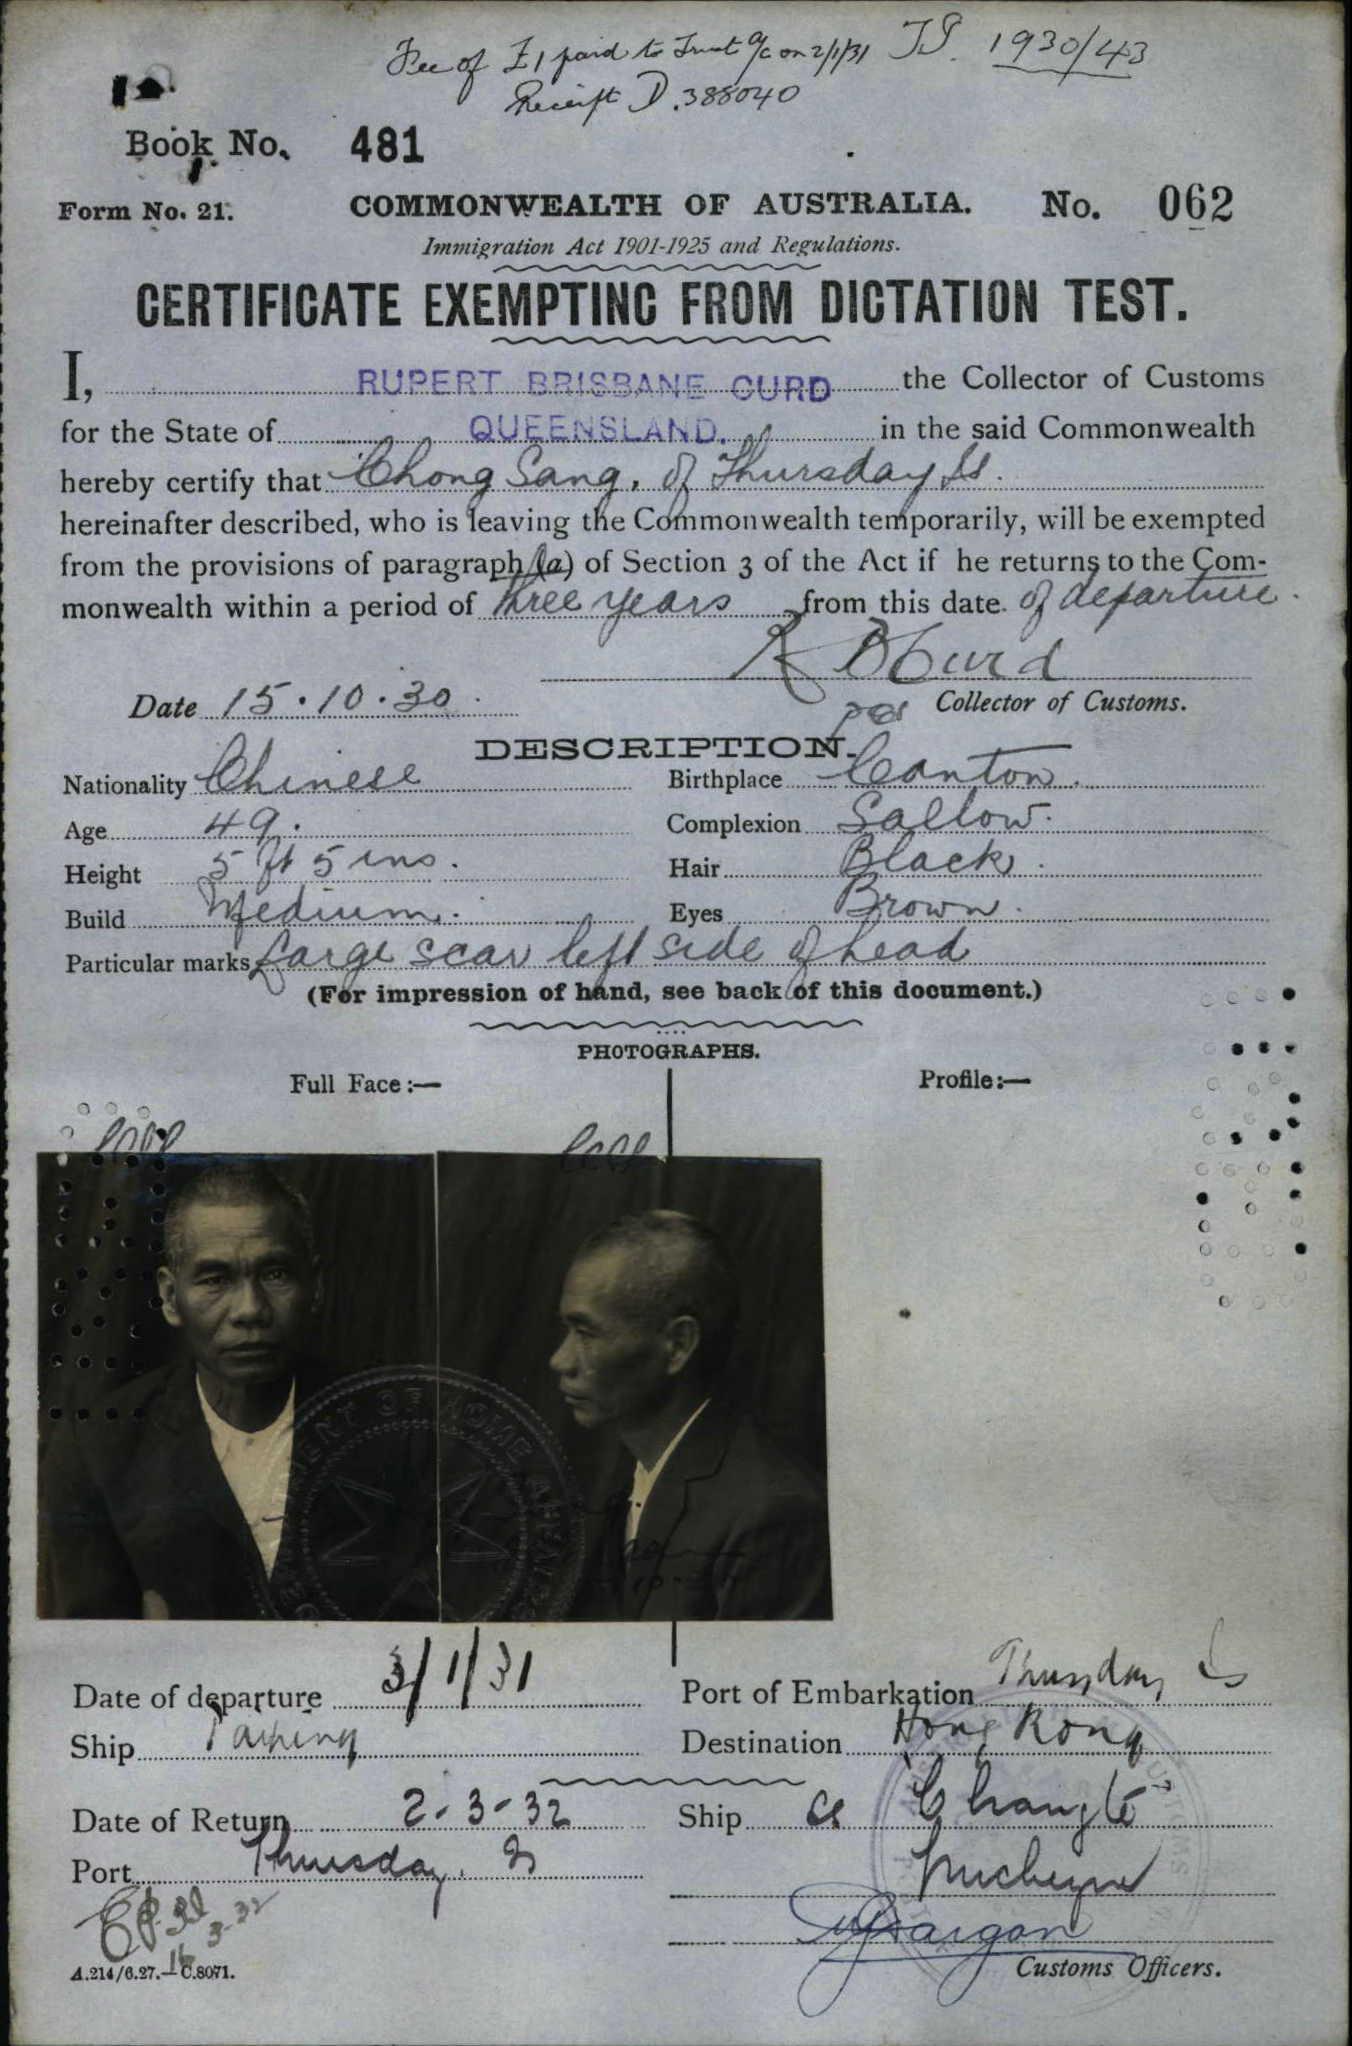 Fee of £1 paid to Trust a/c on 2/1/31 1930/43
Receipt D.388040
Book No. 481
Form No. 21. COMMONWEALTH OF AUSTRALIA. No. 062
Immigration Act 1901-1925 and Regulations.
CERTIFICATE EXEMPTING FROM DICTATION TEST.
I, RUPERT BRISBANE CURD the Collector of Customs
for the State of QUEENSLAND. in the said Commonwealth
hereby certify that Chong Sang, of Thursday Is.
hereinafter described, who is leaving the Commonwealth temporarily, will be exempted
from the provisions of paragraph (a) of Section 3 of the Act if he returns to the Com-
monwealth within a period of three years from this date of departure.
R B Curd
Date 15.10.30. Collector of Customs.
DESCRIPTION.
Nationality Chinese Birthplace Canton.
Age 49. Complexion Sallow.
Height 5 ft 5 ins. Hair Black.
Build Medium. Eyes Brown.
Particular marks Large scar left side of head
(For impression of hand, see back of this document.)
PHOTOGRAPHS.
Full Face:— Profile:—
Date of departure 3/1/31 Port of Embarkation Thursday Is
Ship Taiping Destination Hong Kong
Date of Return 2-3-32 Ship Changte
Port Thursday. Is
16 3-32
A.214/6.27.—C.8071. Customs Officers.